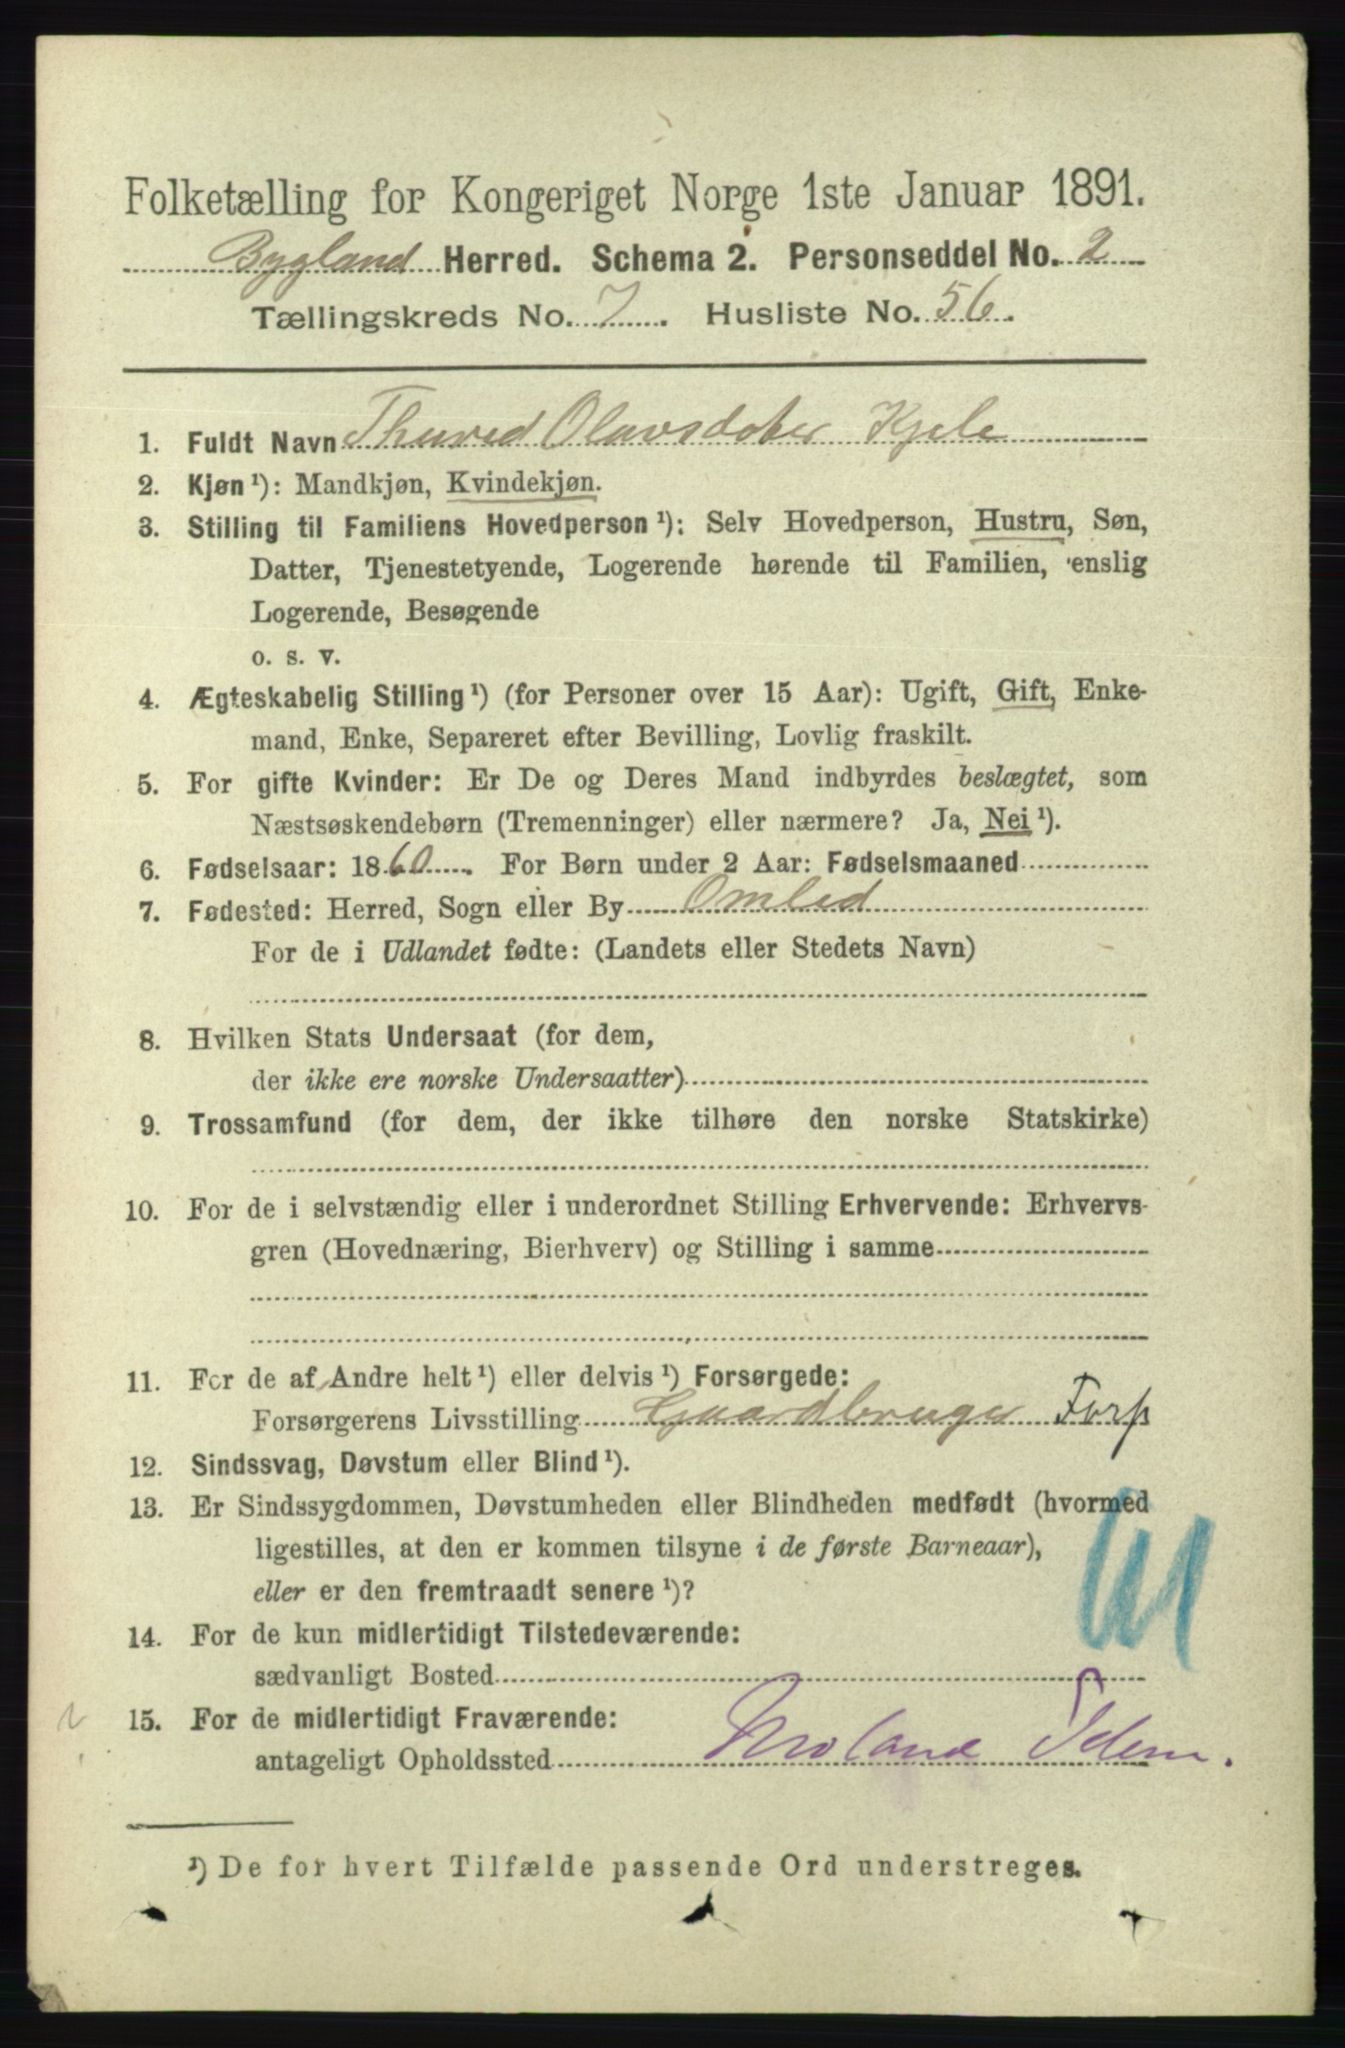 Folketælling for Kongeriget Norge 1ste Januar 1891.
Bygland Herred. Schema 2. Personseddel No. 2
Tællingskreds No. 7. Husliste No. 56.
1. Fuldt Navn Thurid Olavsdotter Kjele
2. Kjøn ¹): Mandkjøn, Kvindekjøn.
3. Stilling til Familiens Hovedperson ¹): Selv Hovedperson, Hustru, Søn,
Datter, Tjenestetyende, Logerende hørende til Familien, enslig
Logerende, Besøgende
o. s. v.
4. Ægteskabelig Stilling ¹) (for Personer over 15 Aar): Ugift, Gift, Enke-
mand, Enke, Separeret efter Bevilling, Lovlig fraskilt.
5. For gifte Kvinder: Er De og Deres Mand indbyrdes beslægtet, som
Næstsøskendebørn (Tremenninger) eller nærmere? Ja, Nei ¹).
6. Fødselsaar: 1860. For Børn under 2 Aar: Fødselsmaaned
7. Fødested: Herred, Sogn eller By Omlid
For de i Udlandet fødte: (Landets eller Stedets Navn)
8. Hvilken Stats Undersaat (for dem,
der ikke ere norske Undersaatter)
9. Trossamfund (for dem, der ikke tilhøre den norske Statskirke)
10. For de i selvstændig eller i underordnet Stilling Erhvervende: Erhvervs-
gren (Hovednæring, Bierhverv) og Stilling i samme
11. For de af Andre helt ¹) eller delvis ¹) Forsørgede:
Forsørgerens Livsstilling Gaardbruger Forp
12. Sindssvag, Døvstum eller Blind ¹).
13. Er Sindssygdommen, Døvstumheden eller Blindheden medfødt (hvormed
ligestilles, at den er kommen tilsyne i de første Barneaar),
eller er den fremtraadt senere ¹)?
14. For de kun midlertidigt Tilstedeværende:
sædvanligt Bosted
15. For de midlertidigt Fraværende:
antageligt Opholdssted
¹) De for hvert Tilfælde passende Ord understreges.